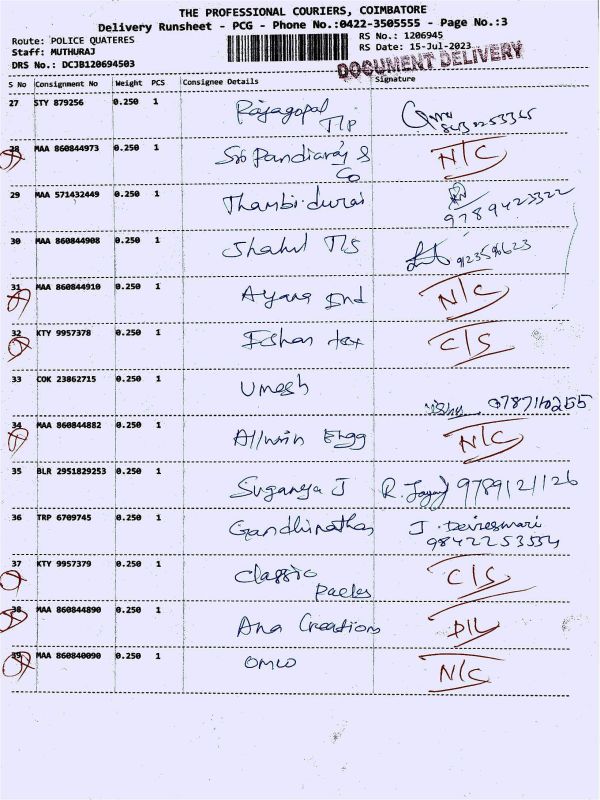 THE PROFESSIONAL COURIERS, COIMBATORE
Delivery Runsheet - PCG - Phone No.:0422-3505555 - Page No.:3
Route: POLICE QUATERES
Staff: MUTHURAJ
DRS No.: DCJB120694503
RS No.: 1206945
RS Date: 15-Jul-2023
DOCUMENT DELIVERY
S No Consignment No Weight PCS Consignee Details Signature
27 STY 879256 0.250 1 Rajagopal
Tlp
28 MAA 860844973 0.250 1 Sri Pandiaraj & N/C
Co
29 MAA 571432449 0.250 1 Thambidurai
9789423322
30 MAA 860844908 0.250 1 Shahul Tls
31 MAA 860844910 0.250 1 Ayana Ind N/C
32 KTY 9957378 0.250 1 Eshan tex C/S
33 COK 23862715 0.250 1 Umesh
34 MAA 860844882 0.250 1 Allwin Engg N/C
35 BLR 2951829253 0.250 1 Suganya J R. 9789121126
36 TRP 6709745 0.250 1 Gandhinathan J.
37 KTY 9957379 0.250 1 Classic C/S
Packs
38 MAA 860844890 0.250 1 Ana Creations D/L
39 MAA 860840090 0.250 1 N/C